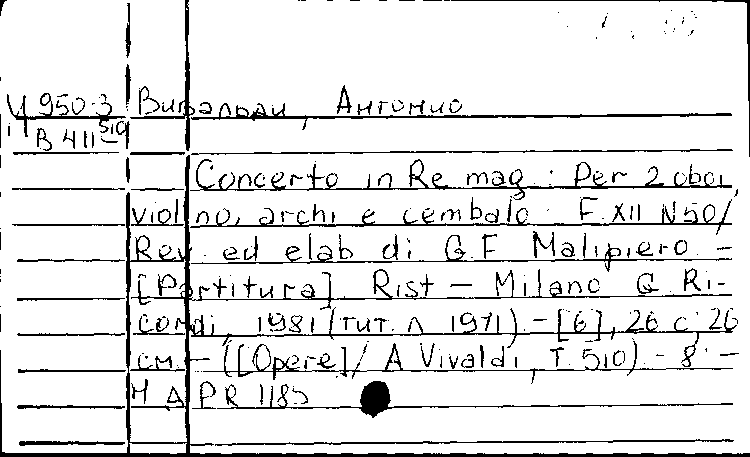 И 950-3 Вивальди, Антонио
В 411 510
Concerto in Re mag : Per 2 oboi,
violino, archi e cembalo F. XII N 50/
Rev ed elab di G F Malipiero -
[Partitura] Rist - Milano G Ri-
cordi, 1981 (тит. л 1971) - [6], 26 с, 26
см - ([Opere]/ A Vivaldi, T. 510) - 8 -
PR 1185